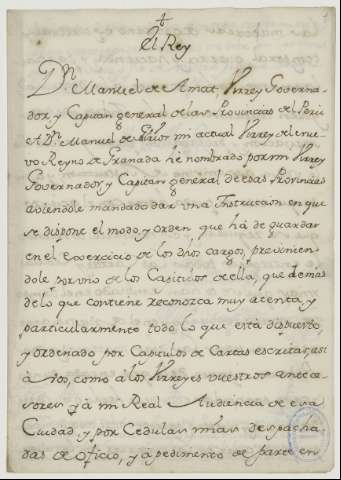 El Rey
Dⁿ. Manuel de Amat, Virrey Governa-
dor y Capitan general de las Provincias del Perú
A Dⁿ. Manuel de Guirior mi actual Virrey del nue-
vo Reyno de Granada hé nombrado por mi Virrey
Governador y Capitan general de esas Provincias
aviendole mandado dar una Instruccion en que
se dispone el modo, y orden que há de guardar
en el exercicio de los dhos cargos, previnien-
dole por uno de los Capitulos de ella, que demas
de lo que contiene reconozca muy atenta, y
particularmente todo lo que está dispuesto,
y ordenado por Capitulos de Cartas escritas, asi
á vos, como á los Virreyes vuestros antece-
sores, y á mi Real Audiencia de esa
Ciudad, y por Cedulas mias despacha-
das de oficio, y á pedimento de parte en